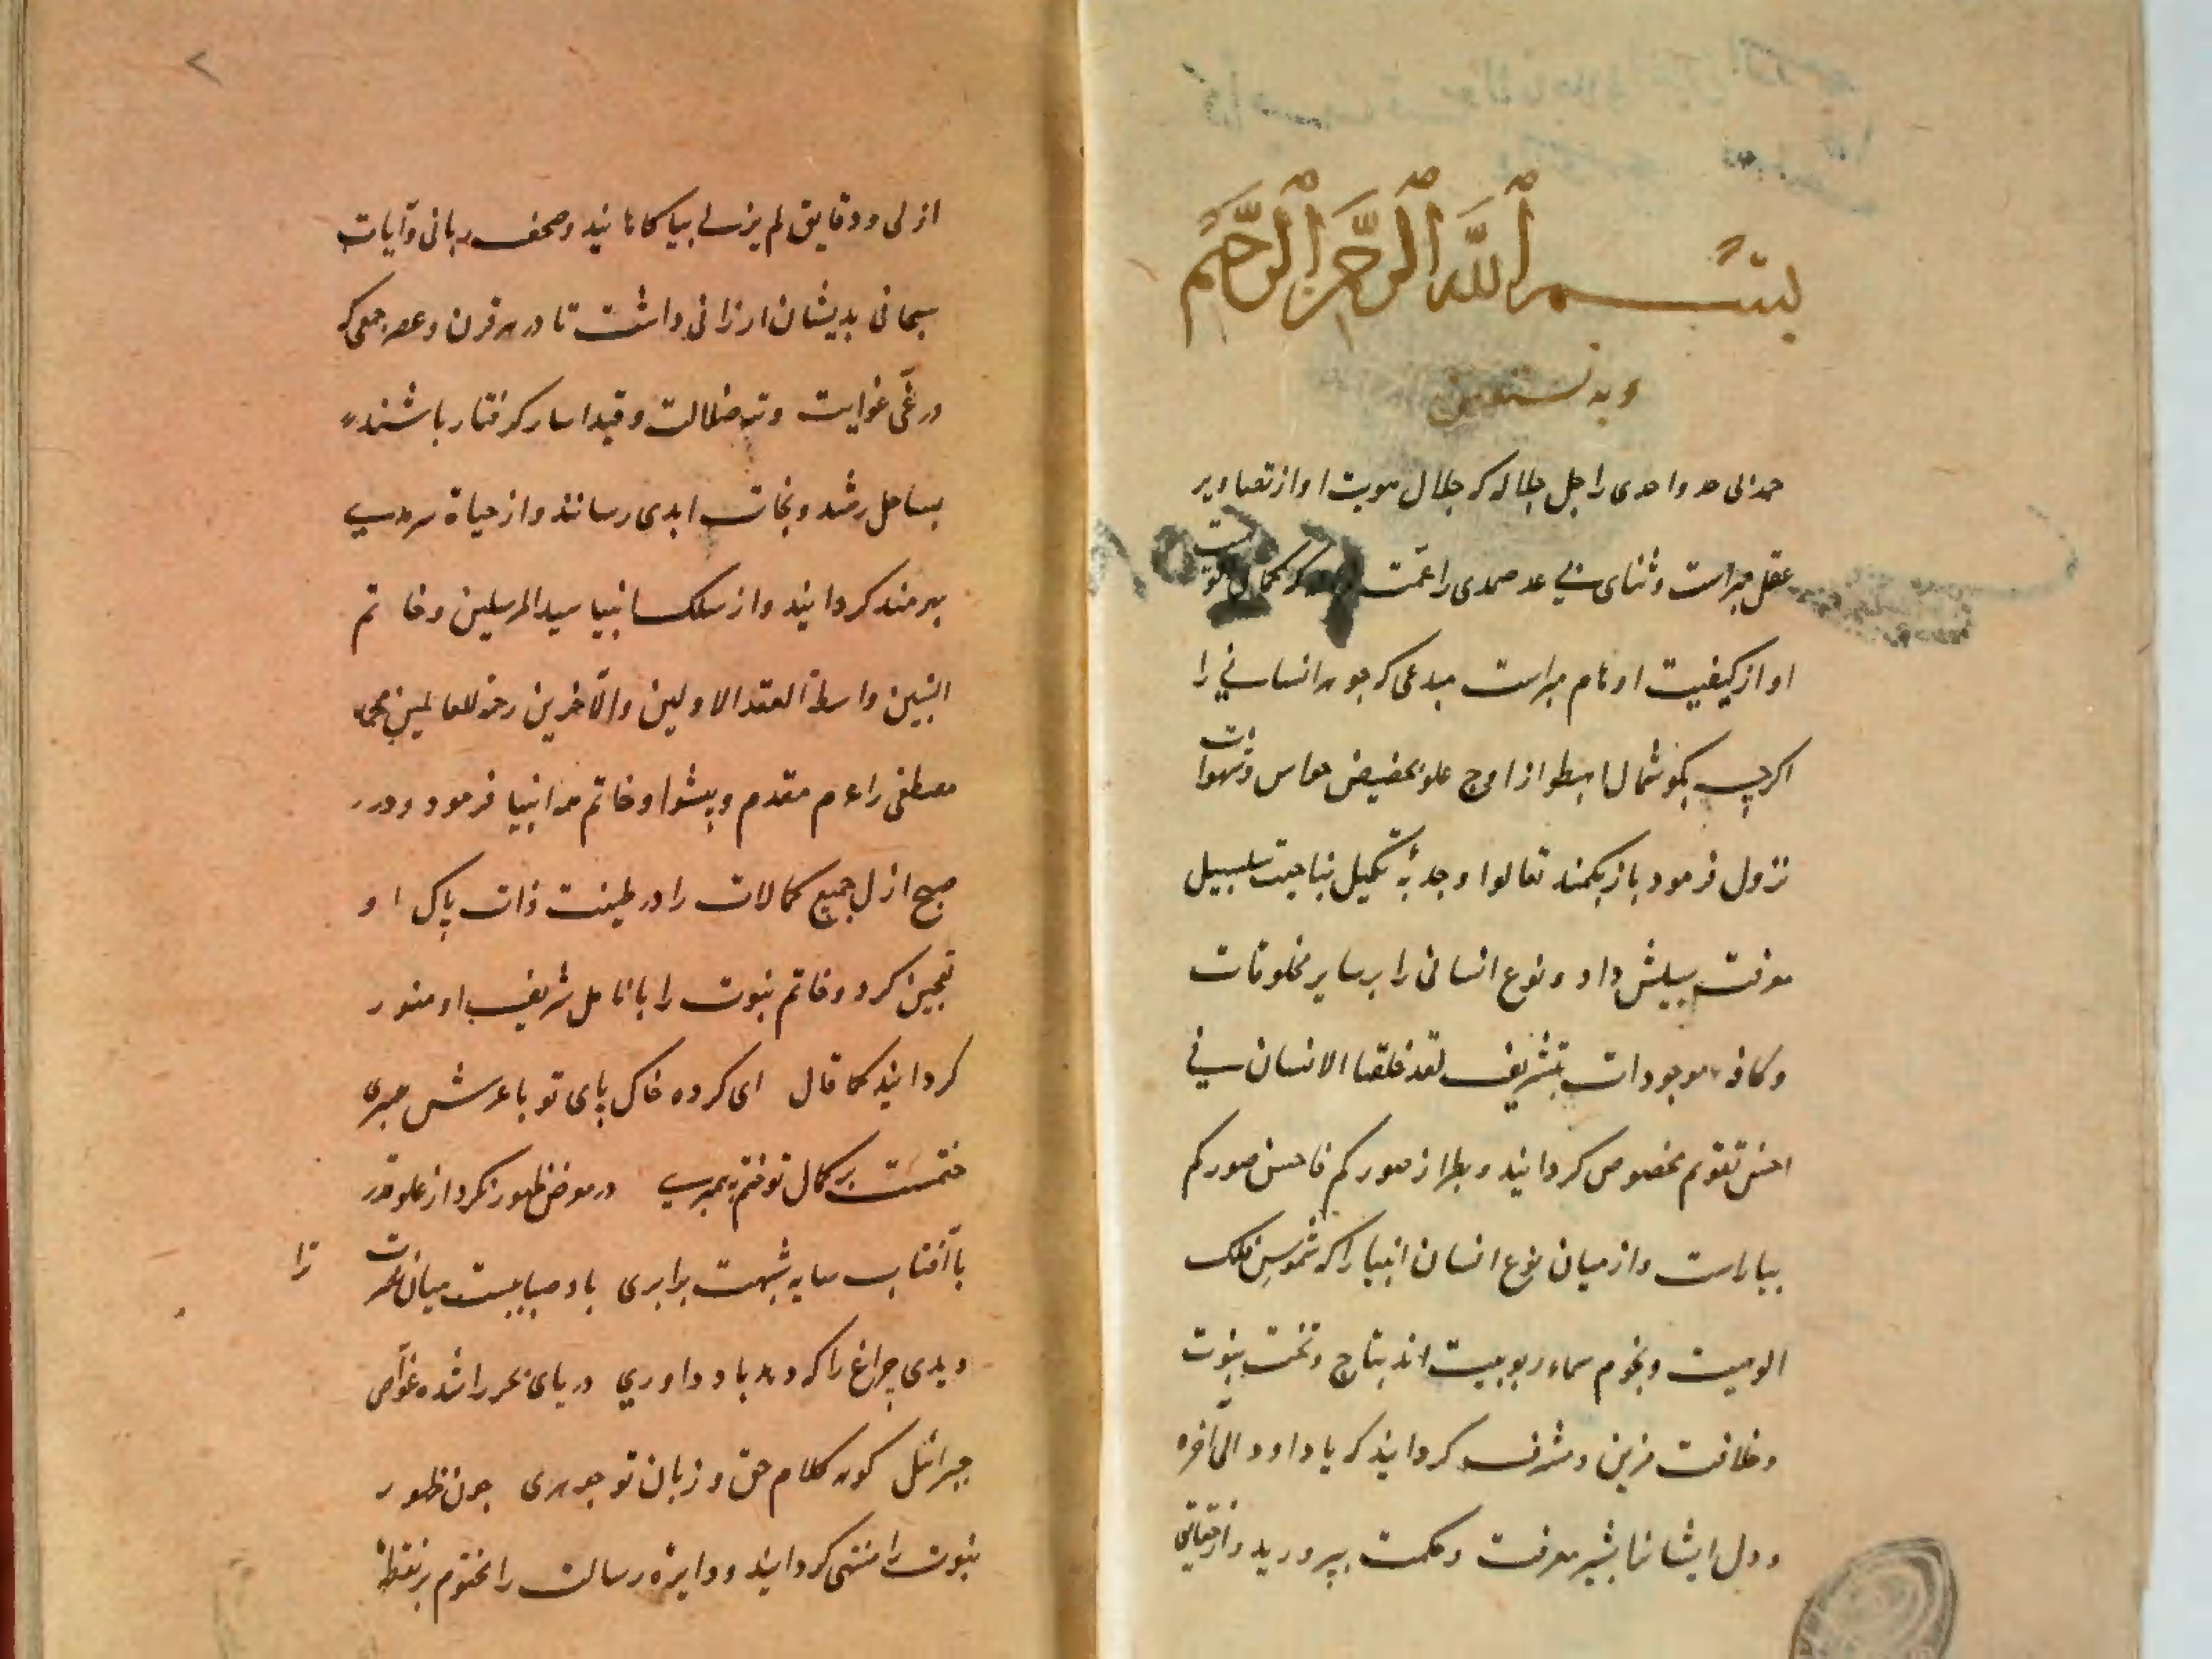 بسم الله الرحمن الرحیم
و به نستعین
حمد الی حد واحدی را جل جلاله که جلال هویت او از تصاویر
عقل مبراست و ثنای بی عد صمدی را عمت که کمال
او از کیفیت اوهام مبراست مبدعی که جوهر انسانی را
اگرچه بگوشمال اهبطوا از اوج علو بحضیض حواس و شهوات
نزول فرمود باز بکمند تعالوا و جذبهٔ تکمیل سلسبیل
معرفت سبیلش داد و نوع انسانی را بر سایر مخلوقات
و کافهٔ موجودات بتشریف لقد خلقنا الانسان فی
احسن تقویم مخصوص کردانید و بطراز صورکم فاحسن صورکم
بیاراست و از میان نوع انسان انبیا را که شموس فلک
الوهیت و نجوم سماء ربوبیت اند بتاج و تخت نبوت
و خلافت مزین و مشرف کردانید که یا داود الی آخره
و دل ایشانرا بشیر معرفت و حکمت بپرورید و از حقایق
ازلی و دقایق لم یزلی بیاکاهانید و صحف ربانی و آیات
سبحانی بدیشان ارزانی داشت تا در هر قرن و عصر جمعی که
در غی غوایت و تیه ضلالت و قید اسار کرفتار باشند
بساحل رشد و نجات ابدی رسانند و از حیاة سرمدی
بهرمند کردانید و از سلک انبیا سید المرسلین و خاتم
النبیین واسطة العقد الاولین والآخرین رحمة للعالمین محمد
مصطفی را عم مقدم و پیشوا و خاتم همه انبیا فرمود و در
صبح ازل جمیع کمالات را در طینت ذات پاک او
تعجین کرد و خاتم نبوت را بانامل شریف او منور
کردانید کما قال ای کرده خاک پای تو با عرش همسری
ختمست بر کمال تو ختم پیمبری در معرض ظهور نکرد از علو قدر
با آفتاب سایه شبهت برابری باد صباست میان تحرت ترا
دیدی چراغ را که دهد باد داوری دریای بحر را شده غواص
جبرائیل کوهر کلام حق و زبان تو جوهری چون ظهور
نبوت را منتهی کردانید و دایرهٔ رسالت را مختوم بر نقطهٔ